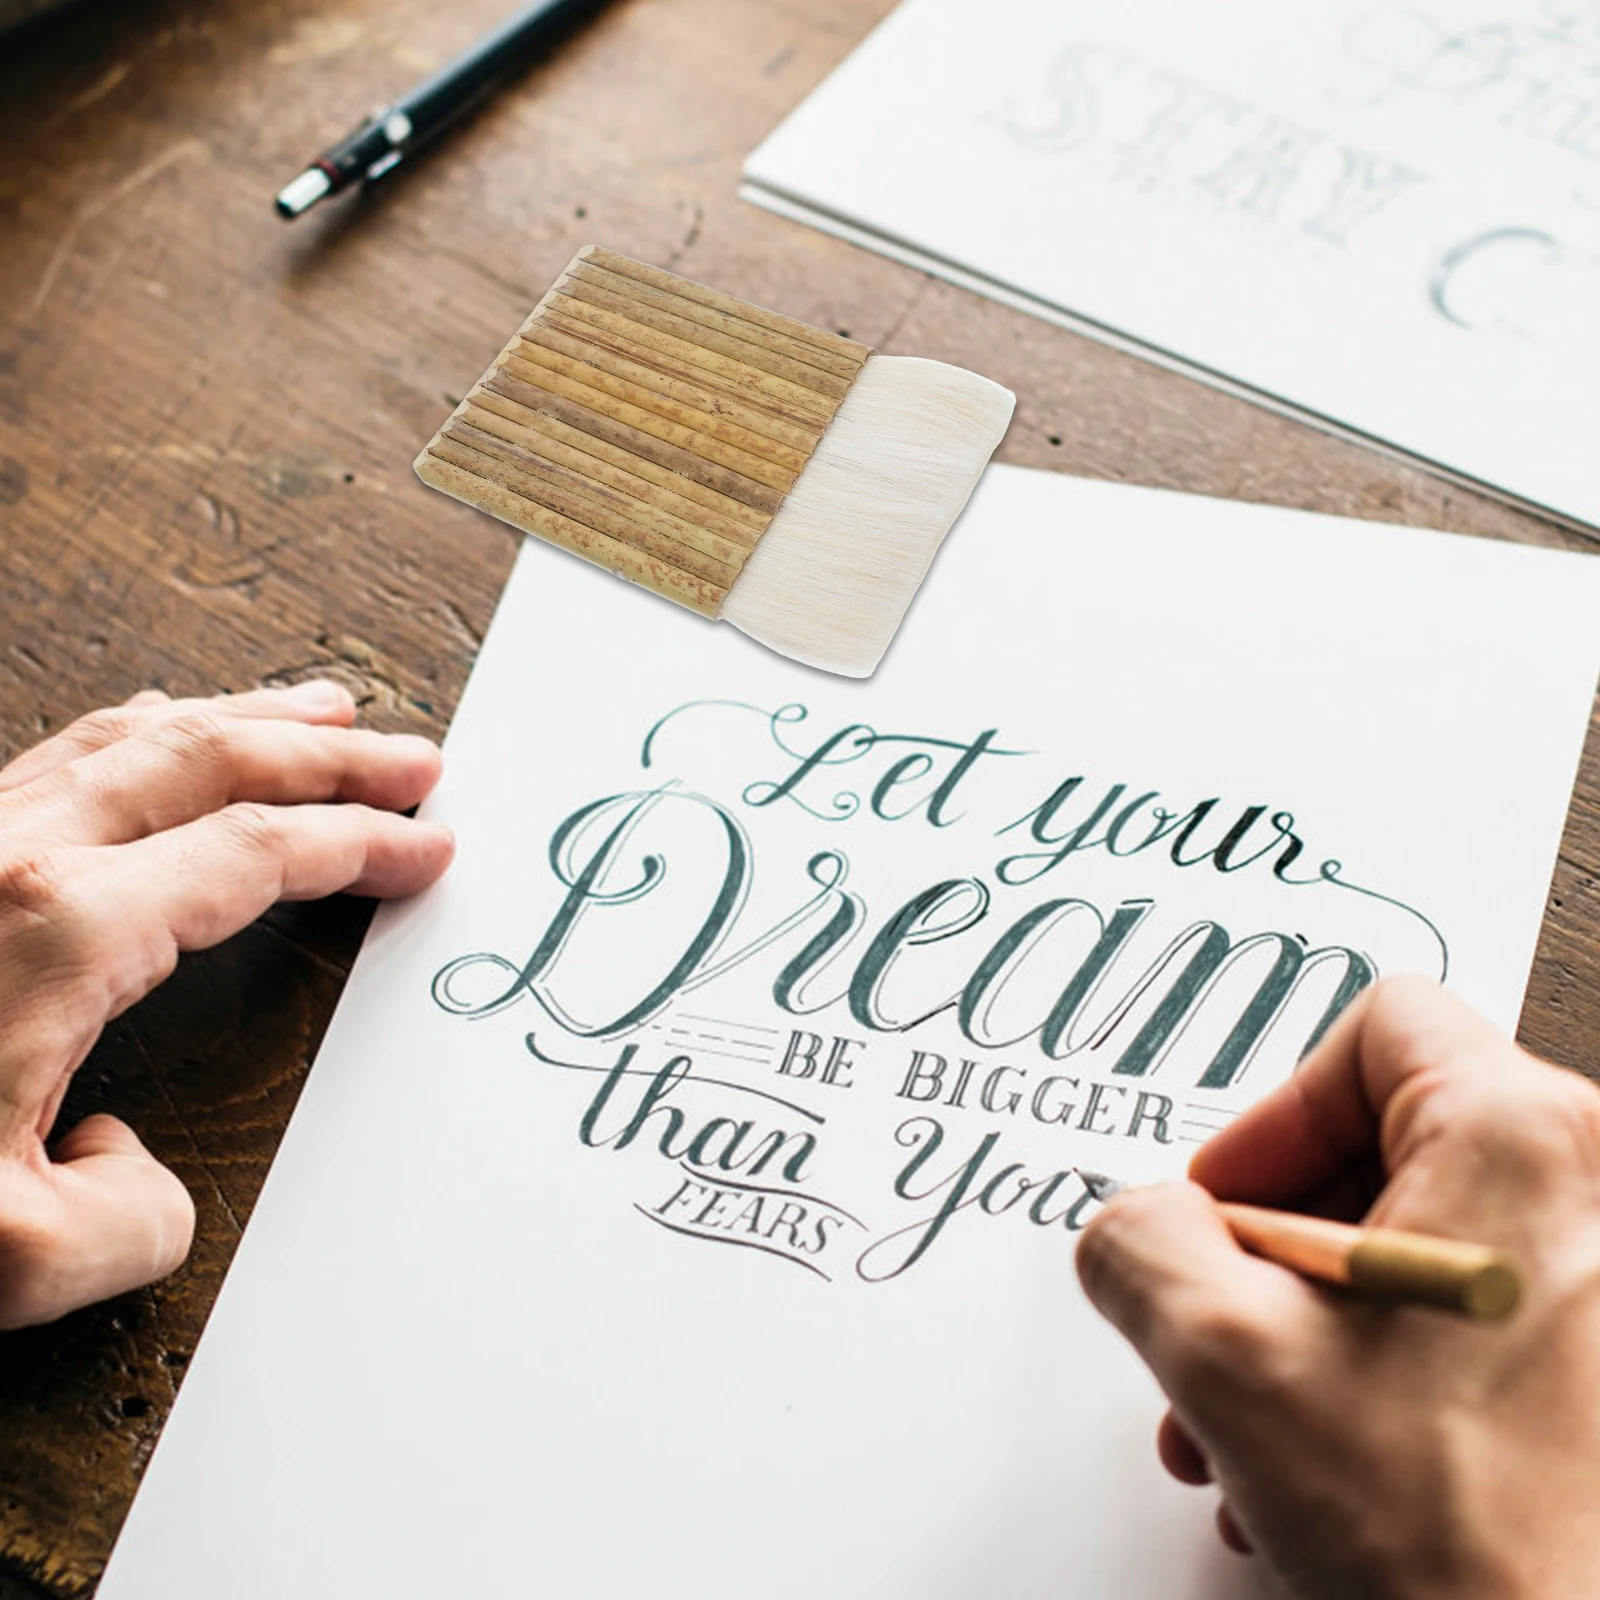 STAY
Let your
Dream
BE BIGGER
than You
FEARS